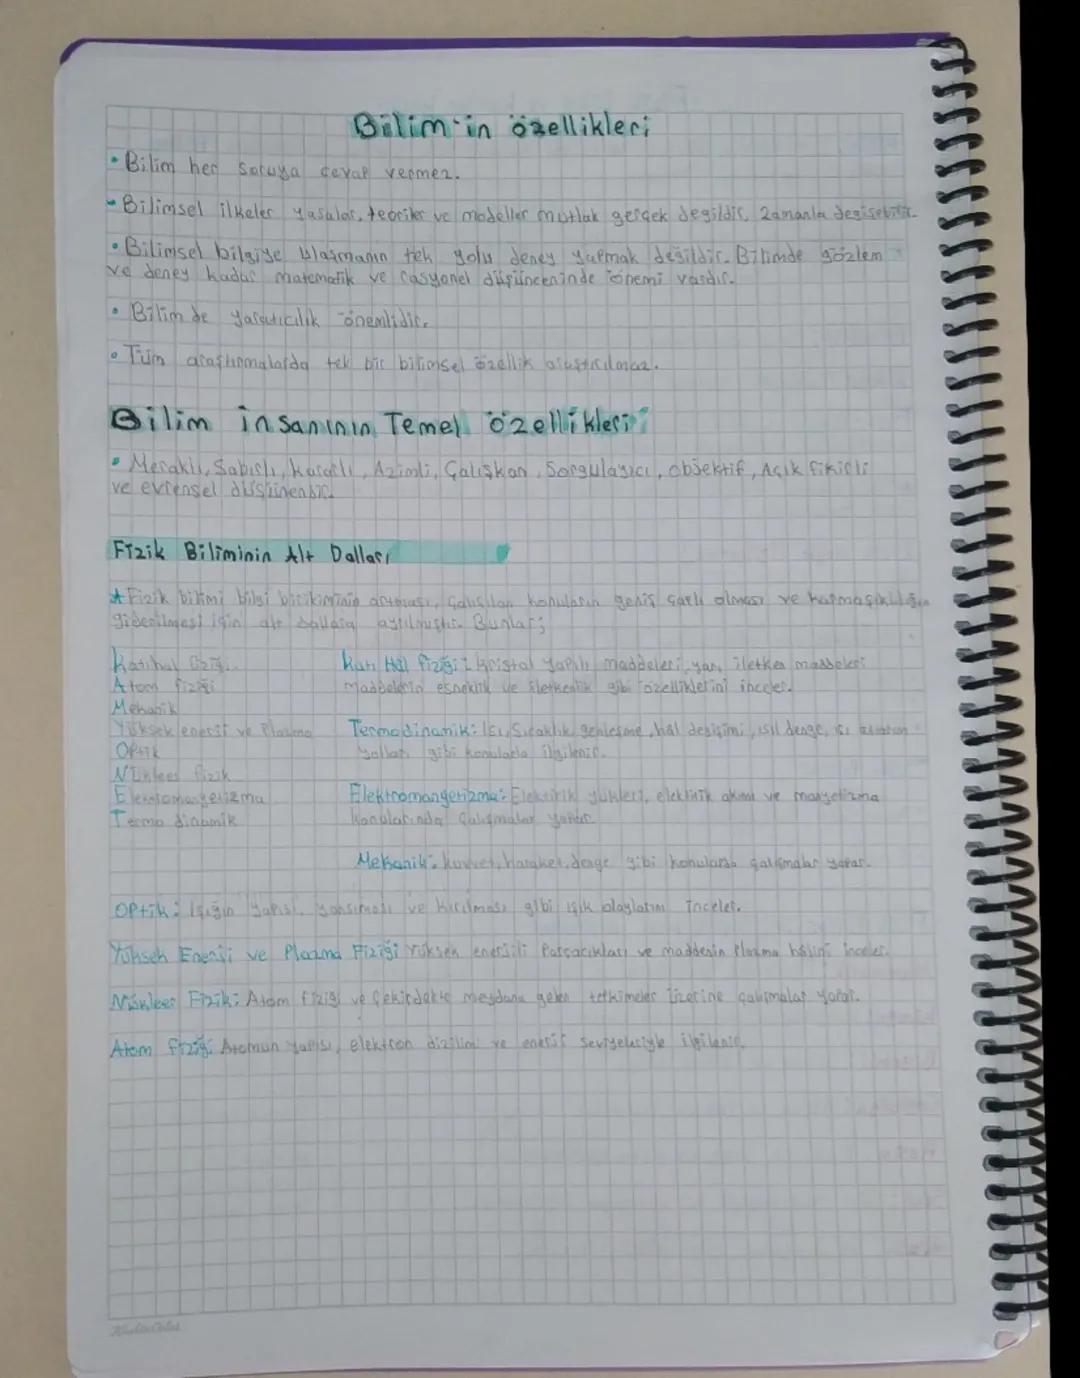 Bilim'in özellikleri
• Bilim her soruya cevap vermez.
• Bilimsel ilkeler yasalar, teoriler ve modeller mutlak gerçek degildir, zamanla degisebilir.
• Bilimsel bilgiye ulaşmanın tek yolu deney yapmak değildir. Bilimde gözlem
ve deney kadar matematik ve rasyonel düşünceninde önemi vardır.
• Bilimde yaratıcılık önemlidir.
• Tüm araştırmalarda tek bir bilimsel özellik araştırılmaz.
Bilim insanının Temel özellikleri
• Meraklı, Sabırlı, kararlı, Azimli, Çalışkan, Sorgulayıcı, objektif, Açık fikirli
ve evrensel düşünendir.
Fizik Biliminin Alt Dalları
★ Fizik bilimi bilgi birikiminin artması, Çalışılan konuların geniş çaplı olması ve karmaşıklığın
giderilmesi için alt dallara ayrılmıştır. Bunlar;
Katıhal fiziği
Atom fiziği
Mekanik
Yüksek enerji ve Plazma
Optik
Nükleer fizik
Elektromanyetizma
Termo dinamik
Katı Hal fiziği: Kristal yapılı maddeleri, yarı iletken maddeleri
maddelerin esneklik ve iletkenlik gibi özelliklerini inceler.
Termodinamik: Isı, Sıcaklık, genleşme, hal değişimi, ısıl denge, ısı
yolları gibi konularla ilgilenir.
Elektromangetizma: Elektirik yükleri, elektirik akımı ve manyetizma
konularında Çalışmalar yapar.
Mekanik: kuvvet, hareket, denge gibi konularda çalışmalar yapar.
OPtik: Işığın Yapısı, yansıması ve kırılması gibi ışık olaylarını inceler.
Yüksek Enerji ve Plazma Fiziği Yüksek enerjili Parçacıkları ve maddenin Plazma hâlini inceler.
Nükleer Fizik: Atom fiziği ve Çekirdekte meydana gelen tetkimeler üzerine çalışmalar yapar.
Atom fiziği: Atomun Yapısı, elektron dizilimi ve enerji seviyeleriyle ilgilenir.